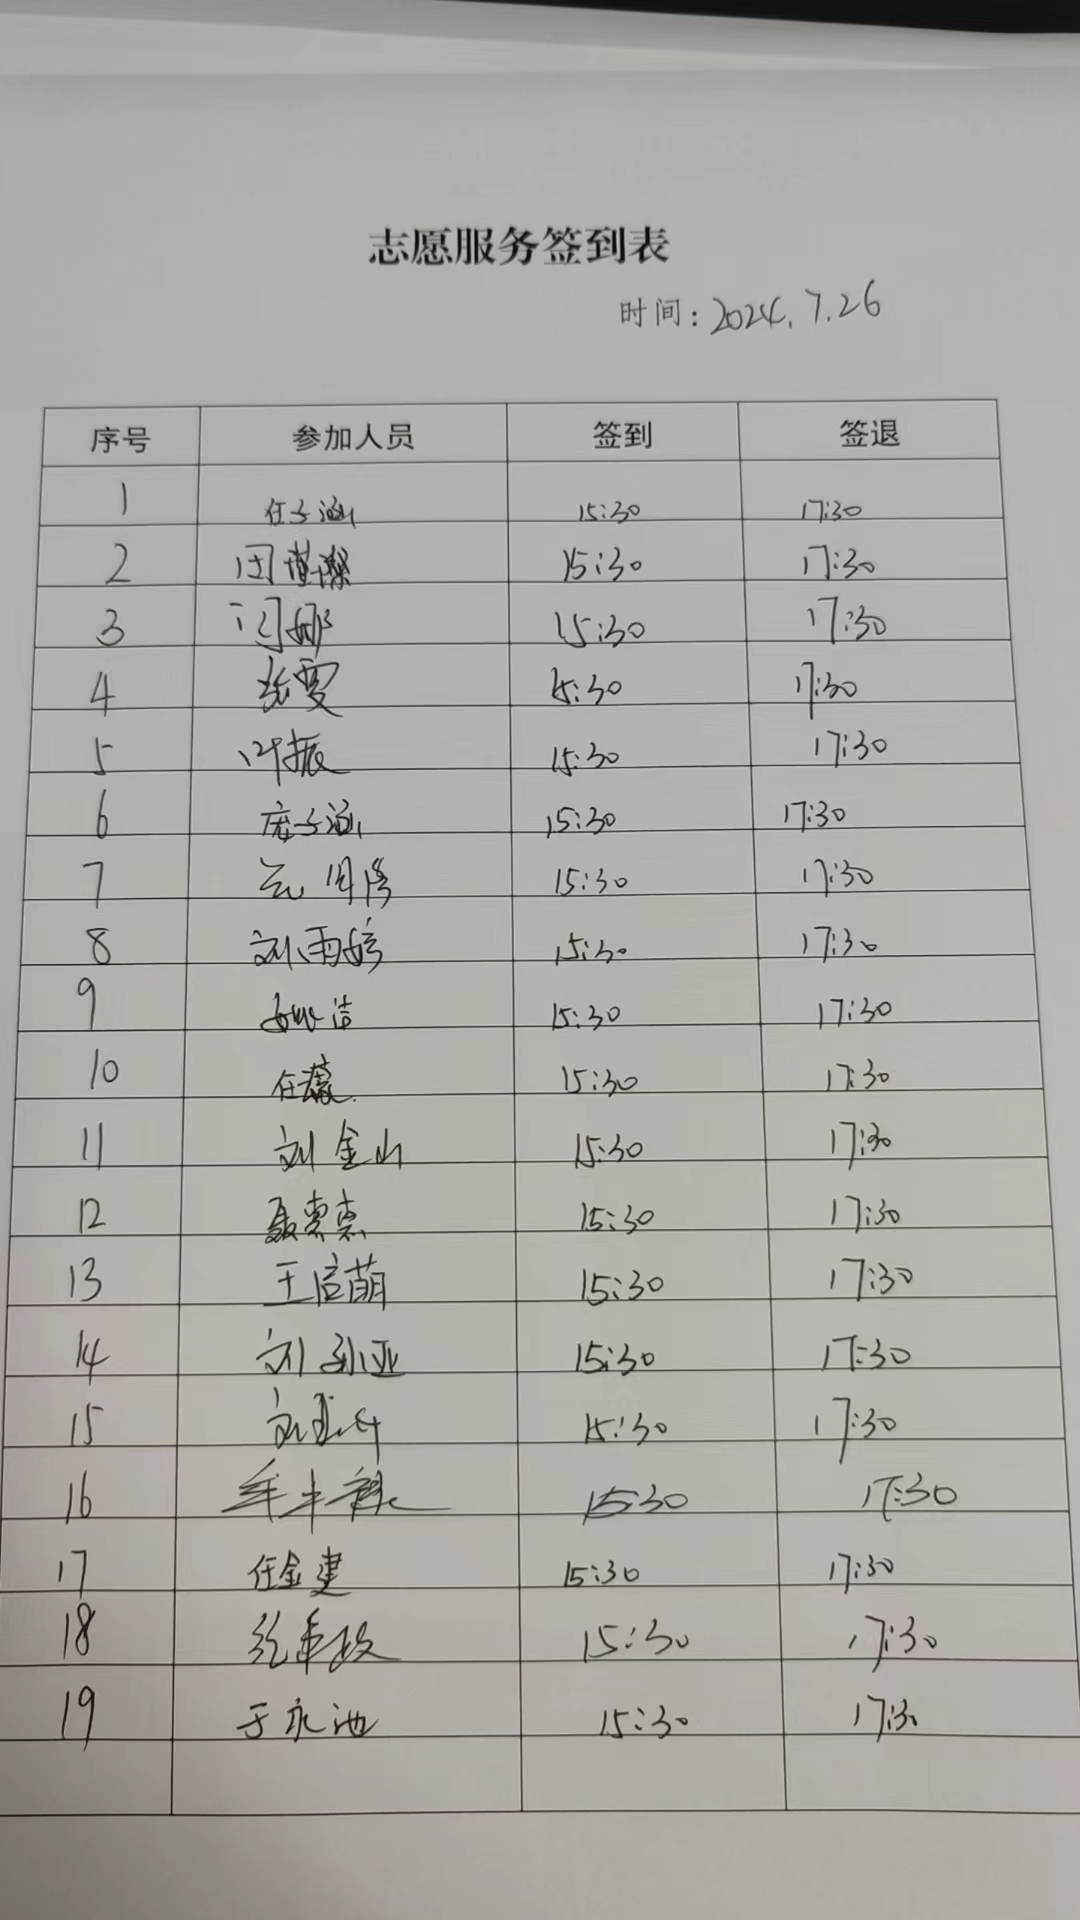 志愿服务签到表
时间：2024.7.26
序号 参加人员 签到 签退
1 任子涵 15:30 17:30
2 田 15:30 17:30
3 闫娜 15:30 17:30
4 张雯 15:30 17:30
5 叶振 15:30 17:30
6 庞子涵 15:30 17:30
7 15:30 17:30
8 刘雨婷 15:30 17:30
9 姚洁 15:30 17:30
10 任 15:30 17:30
11 刘金山 15:30 17:30
12 聂惠惠 15:30 17:30
13 王启萌 15:30 17:30
14 刘孙亚 15:30 17:30
15 刘 15:30 17:30
16 15:30 17:30
17 任金建 15:30 17:30
18 15:30 17:30
19 于永池 15:30 17:30